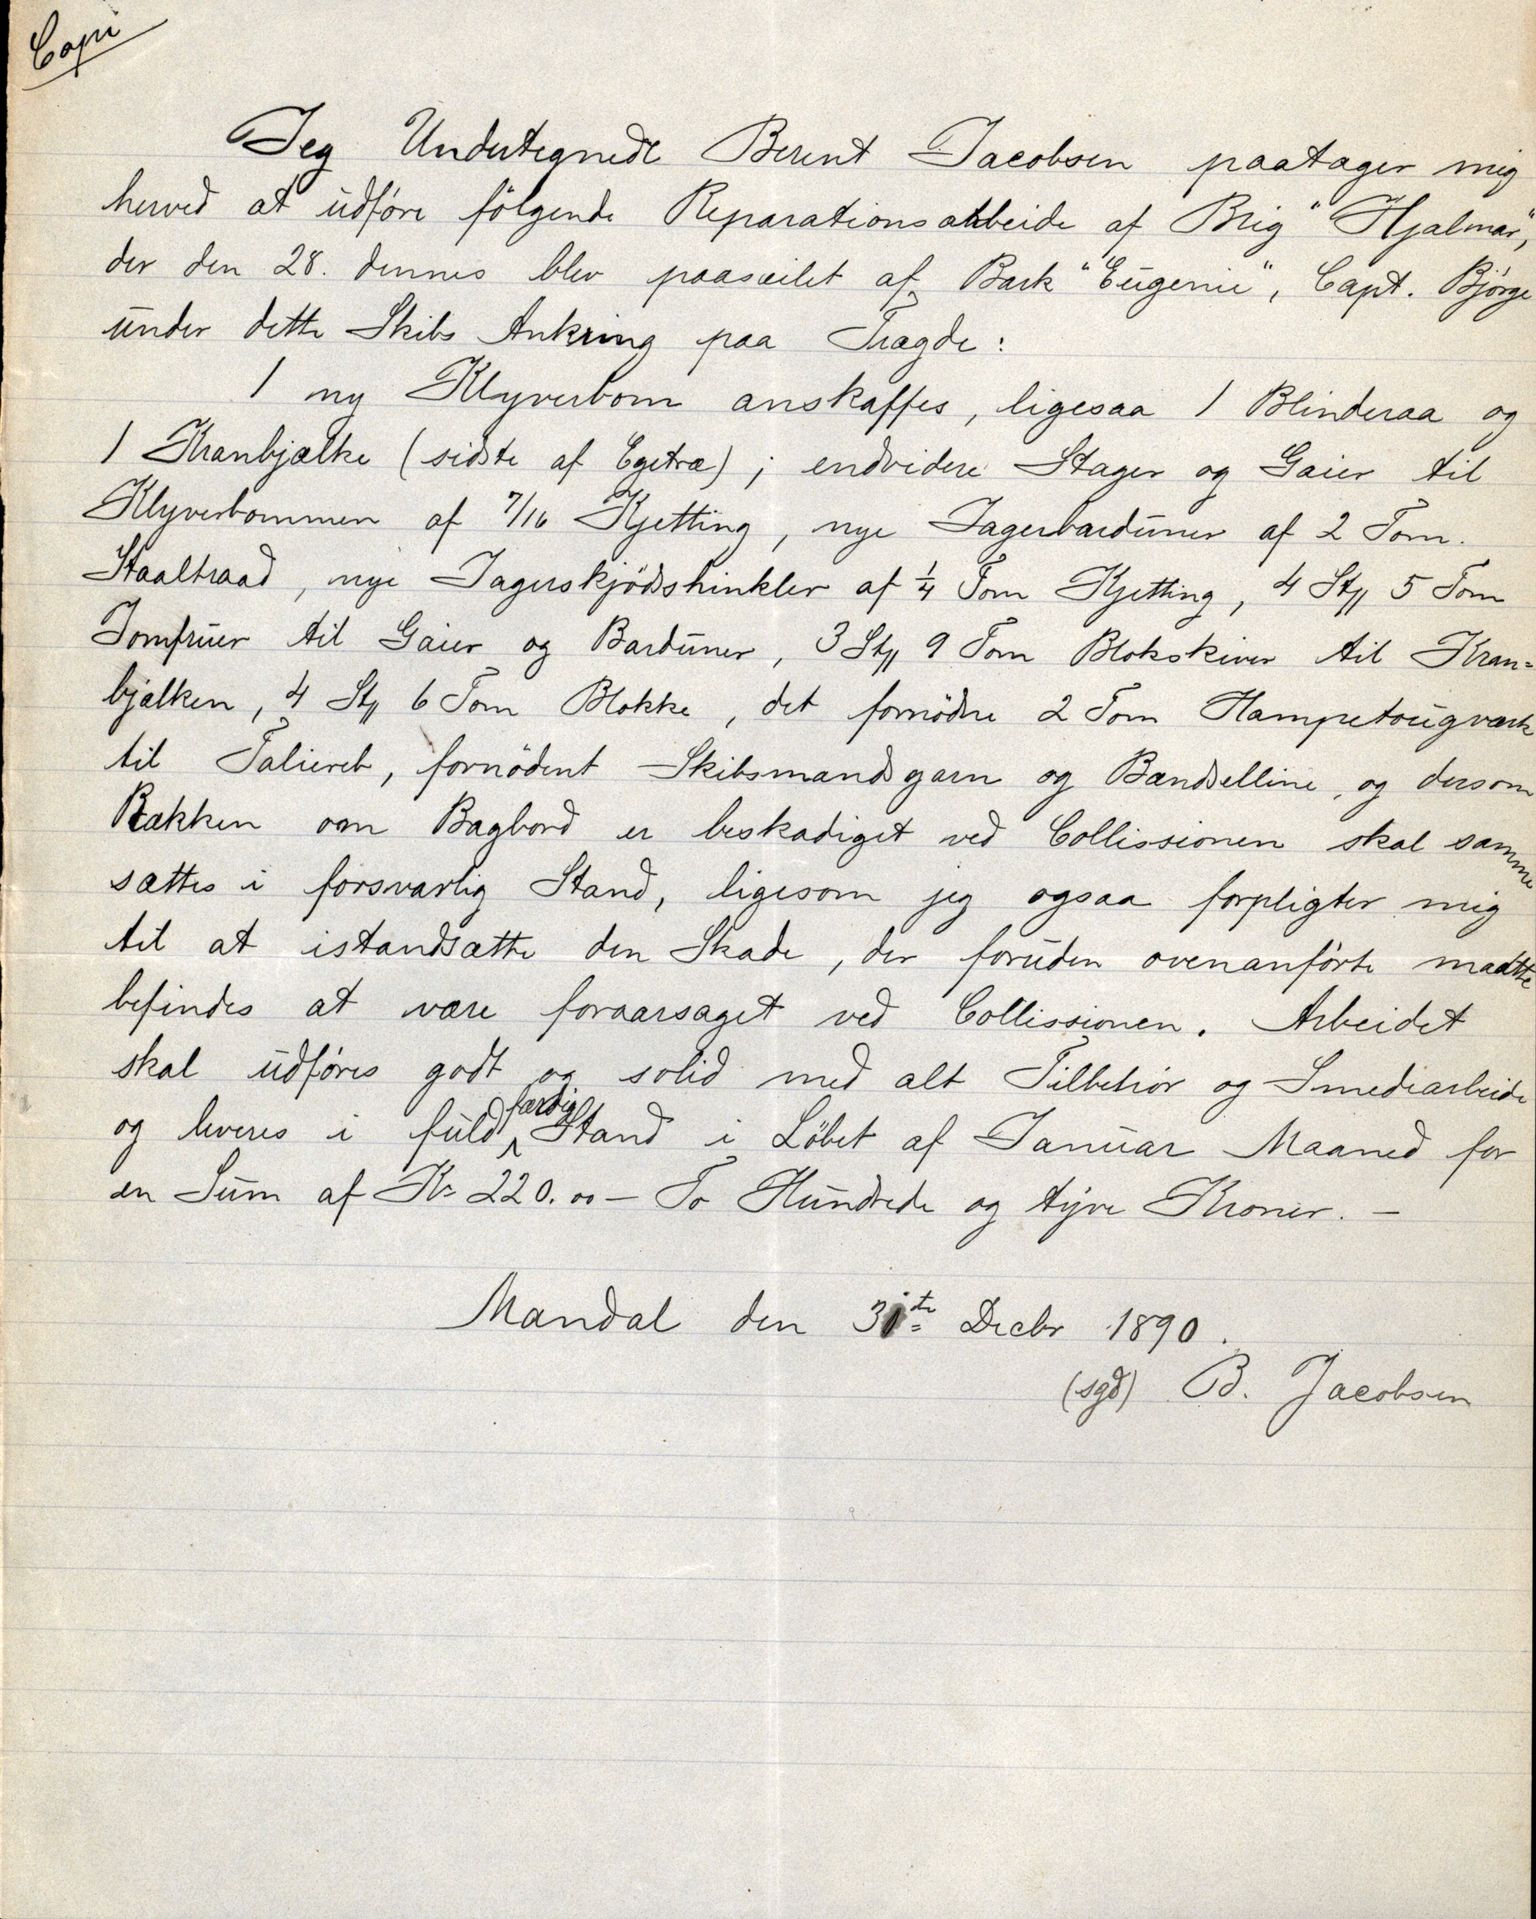 Copi
Jeg Undertegnede Berent Jacobsen paatager mig
herved at udføre følgende Reparationsarbeide af Brig "Hjalmar",
der den 28. dennes blev paaseilet af Bark "Eugenie", Capt. Bjørge
under dette Skibs Ankring paa Tragde:
1 ny Klyverbom anskaffes, ligesaa 1 Blinderaa og
1 Kranbjælke (sidste af Egetræ); endvidere Stager og Gaier til
Klyverbommen af 7/16 Kjetting, nye Jagerbarduner af 2 Tom.
Staaltraad, nye Jagerskjødshinkler af ¼ Tom Kjetting, 4 Stk 5 Tom
Jomfruer til Gaier og Barduner, 3 Stk 9 Tom Blokskiver til Kran=
bjælken, 4 Stk 6 Tom Blokke, det fornødne 2 Tom Hampetougværk
til Taliereb, fornødent Skibsmandsgarn og Bændselline, og dersom
Rækken om Bagbord er beskadiget ved Collissionen skal samme
sættes i forsvarlig Stand, ligesom jeg ogsaa forpligter mig
til at istandsætte den Skade, der foruden ovenanførte maatte
befindes at være foraarsaget ved Collissionen. Arbeidet
skal udføres godt og solid med alt Tilbehør og Smediarbeide
og leveres i fuld færdig Stand i Løbet af Januar Maaned for
en Sum af Kr 220.00 — To Hundrede og tyve Kroner. —
Mandal den 31te Decbr 1890.
(sgd) B. Jacobsen